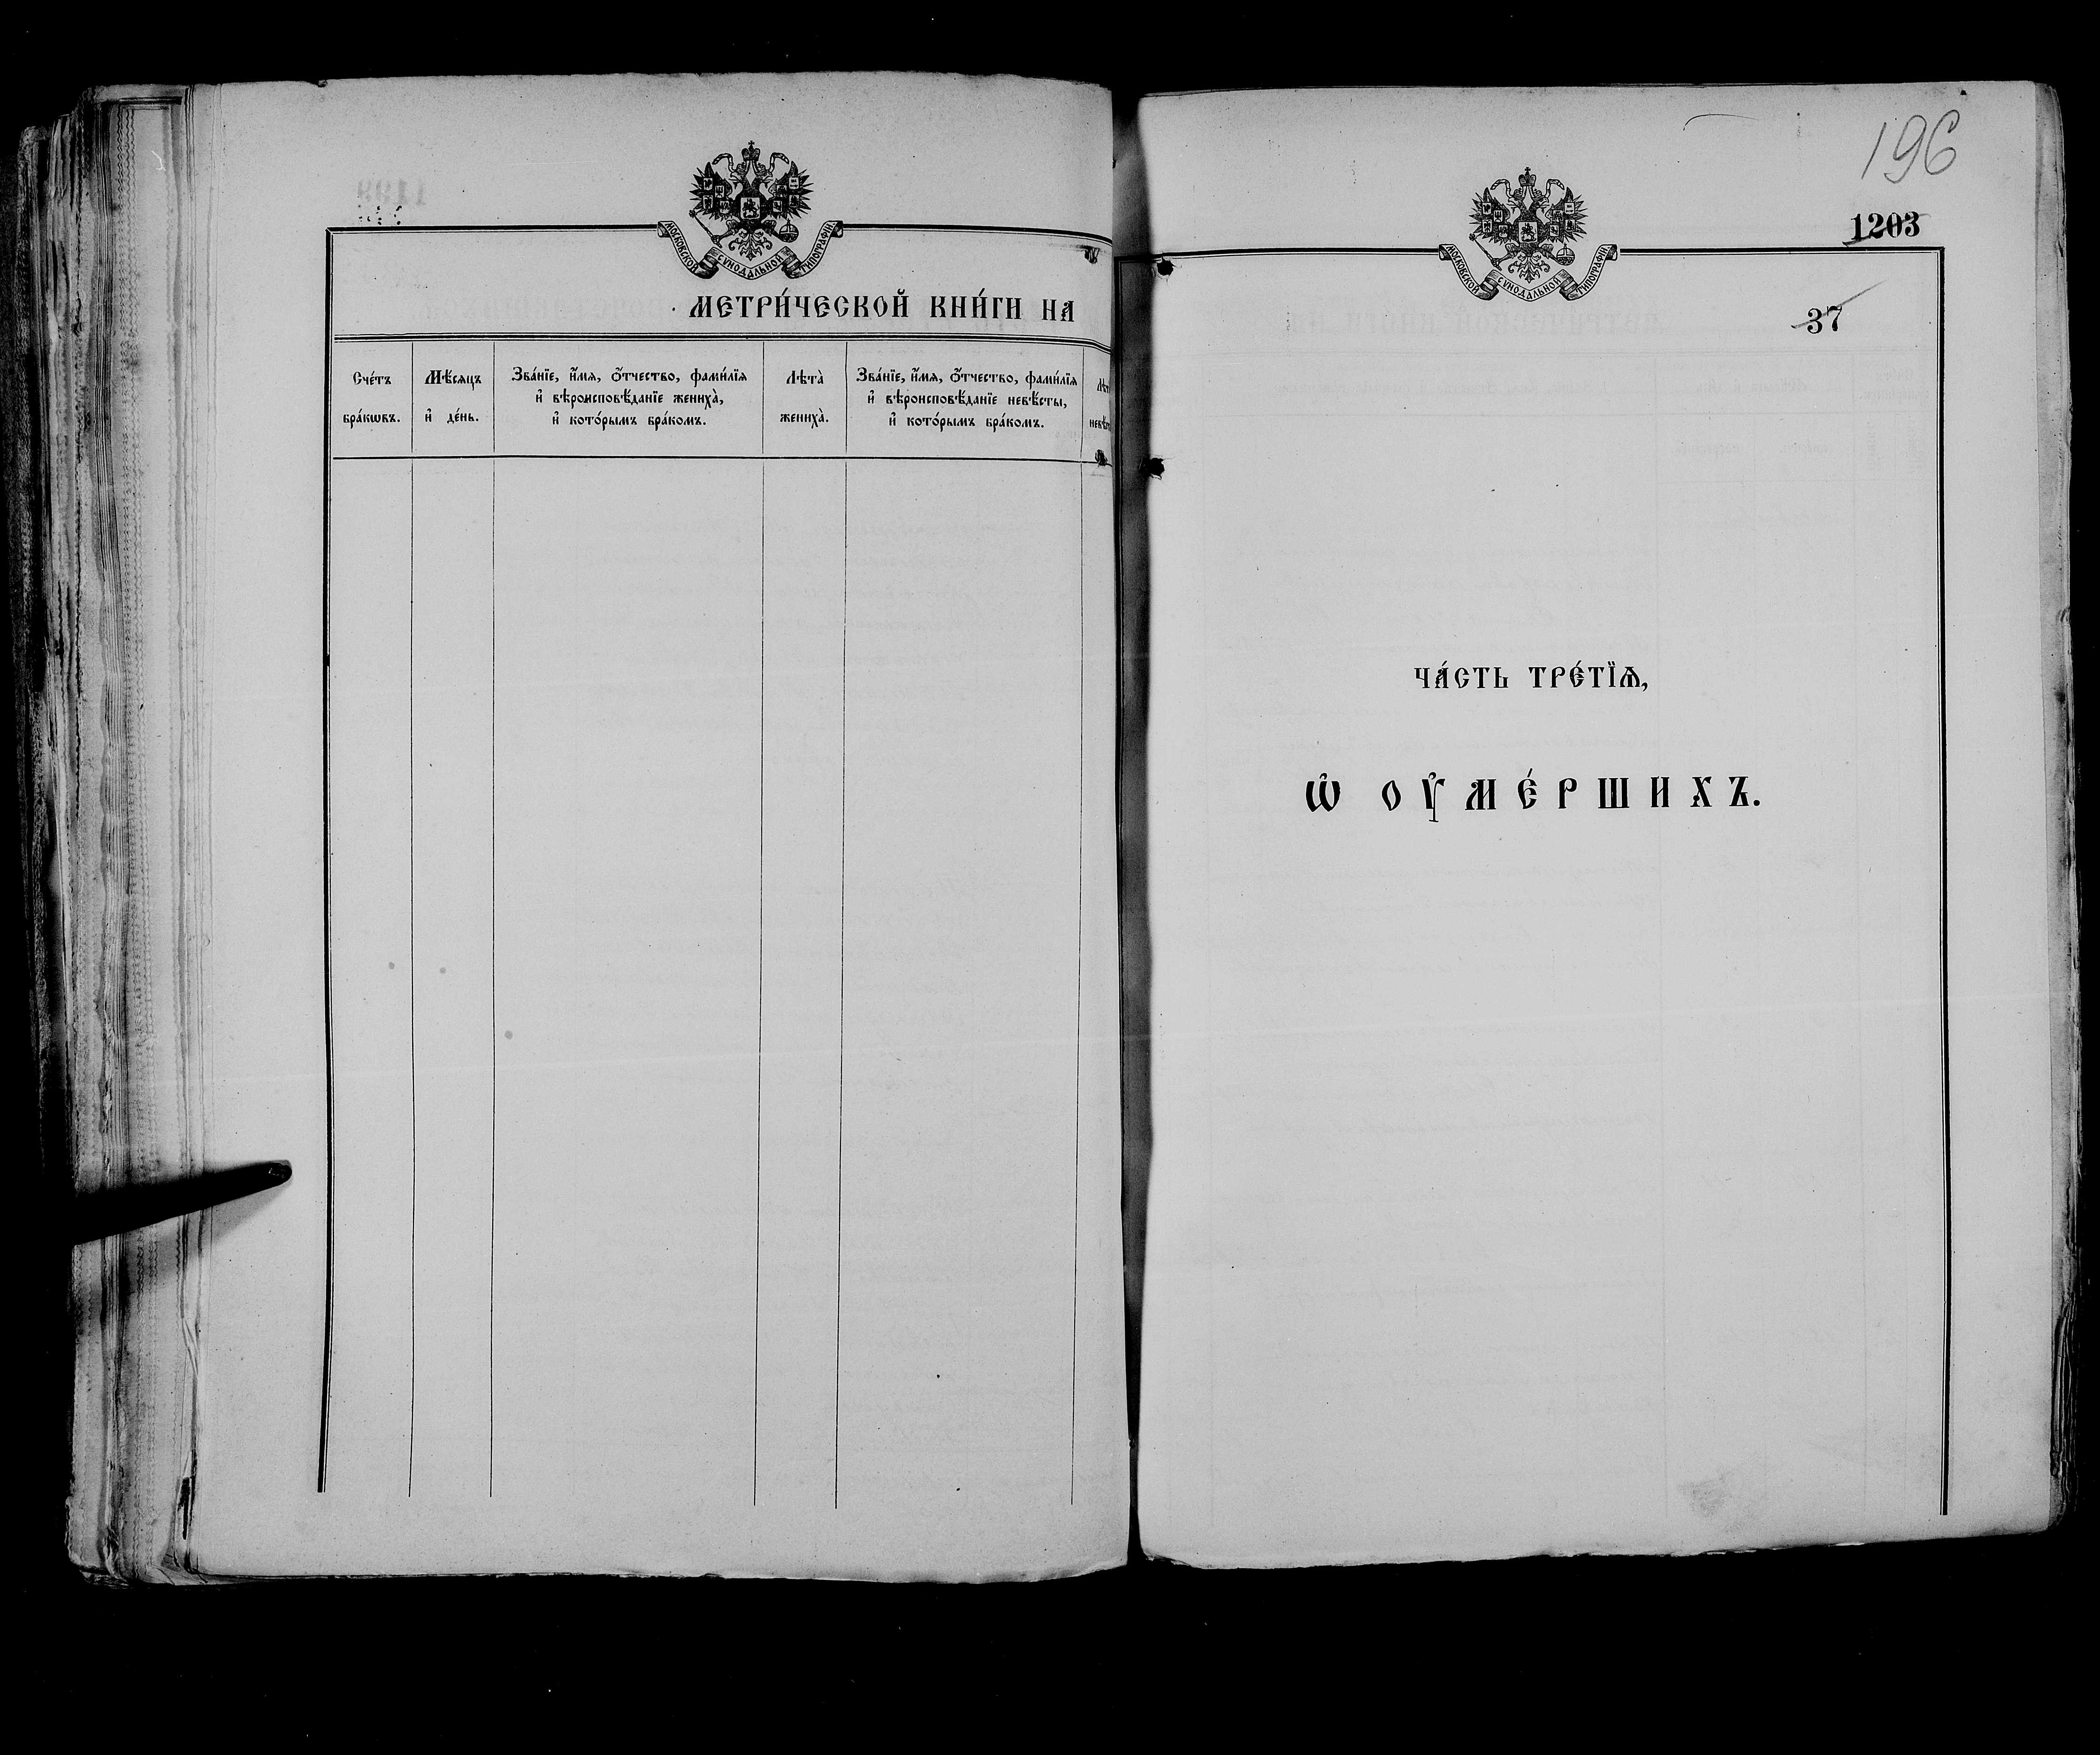 МОСКОВСКОЙ СУНОДАЛЬНОЙ ТИПОГРАФІИ
МЕТРИ́ЧЕСКОЙ КНИ́ГИ НА
Сче́тъ бра́кѡвъ.
Мѣ́сяцъ и҆ де́нь.
Зва́нїе, и҆́мя, ѻ҆́тчество, фами́лїя
и҆ вѣроисповѣ́данїе жениха̀,
и҆ кото́рымъ бра́комъ.
Лѣта̀ жениха̀.
Зва́нїе, и҆́мя, ѻ҆́тчество, фами́лїя
и҆ вѣроисповѣ́данїе невѣ́сты,
и҆ кото́рымъ бра́комъ.
196
1203
МОСКОВСКОЙ СУНОДАЛЬНОЙ ТИПОГРАФІИ
37
ЧА́СТЬ ТРЕ́ТЇѦ,
Ѡ҆ ОУ҆МЕ́РШИХЪ.